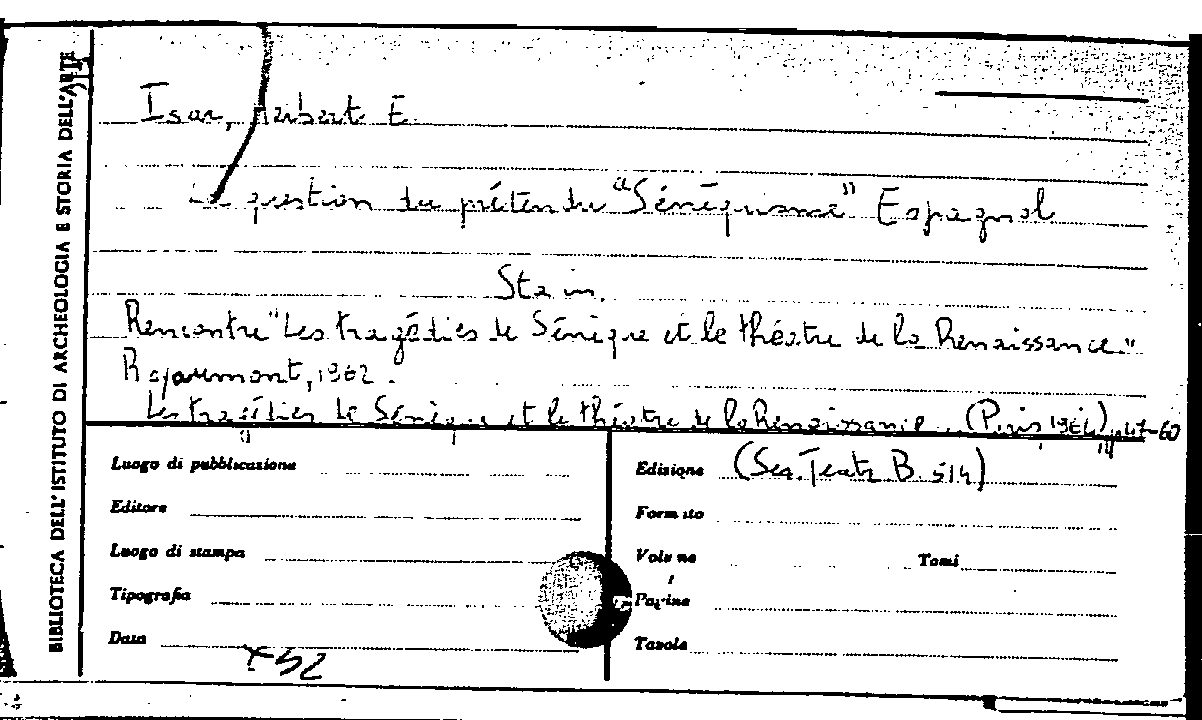 BIBLIOTECA DELL'ISTITUTO DI ARCHEOLOGIA E STORIA DELL'ARTE
Isar, Herbert E.
La question du prétendu "Sénéquisme" Espagnol
Sta in.
Rencontre "Les tragédies de Sénèque et le théâtre de la Renaissance."
Royaumont, 1962.
Les tragédies de Sénèque et le théâtre de la Renaissance (Paris 1964), 47-60
Luogo di pubblicazione
Edizione (Sea. Teatr. B. 514)
Editore
Formato
Luogo di stampa
Volume Tomi
Tipografia
Pagine
Data
Tavole